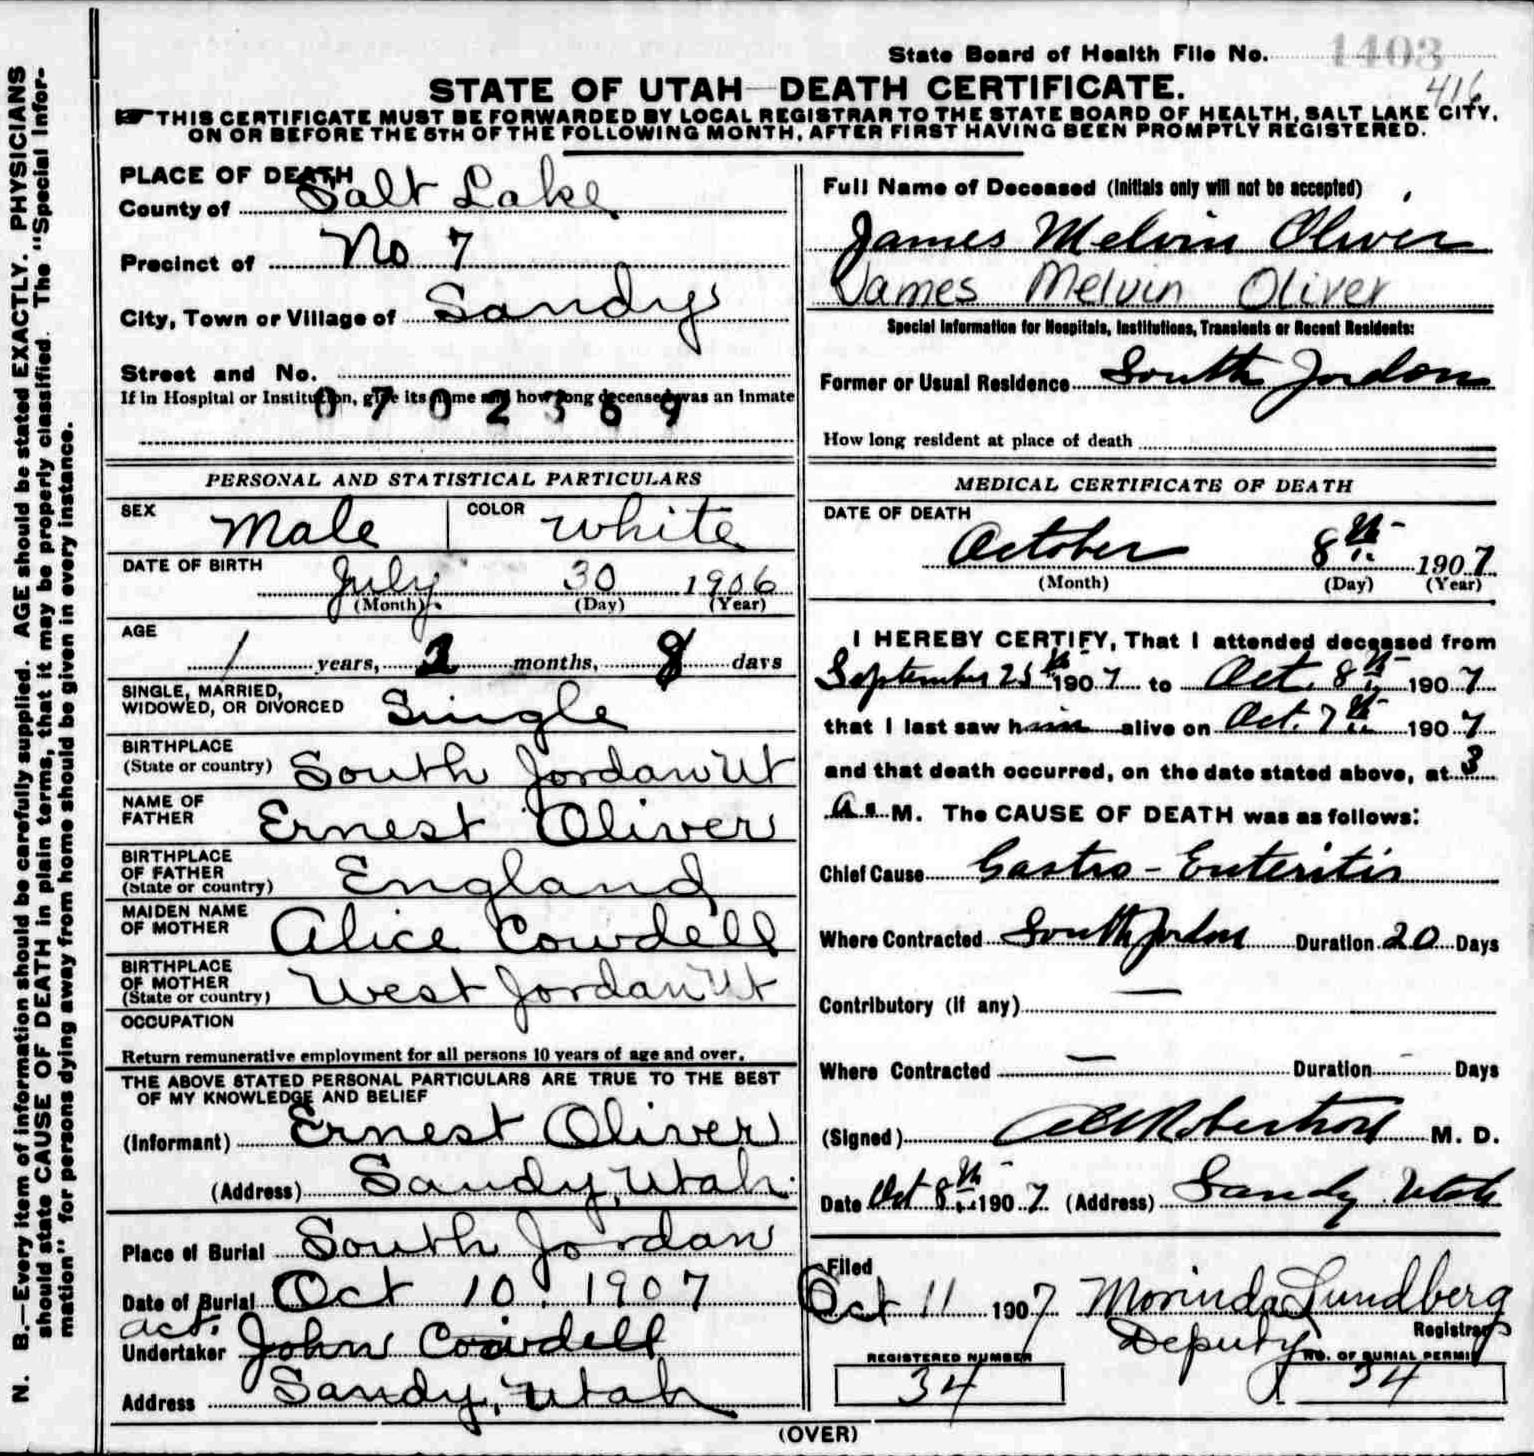 State Board of Health File No. 1403
416
STATE OF UTAH—DEATH CERTIFICATE.
THIS CERTIFICATE MUST BE FORWARDED BY LOCAL REGISTRAR TO THE STATE BOARD OF HEALTH, SALT LAKE CITY,
ON OR BEFORE THE 5TH OF THE FOLLOWING MONTH, AFTER FIRST HAVING BEEN PROMPTLY REGISTERED.
N. B.—Every item of information should be carefully supplied. AGE should be stated EXACTLY. PHYSICIANS
should state CAUSE OF DEATH in plain terms, that it may be properly classified. The "Special Infor-
mation" for persons dying away from home should be given in every instance.
PLACE OF DEATH
County of Salt Lake
Precinct of No 7
City, Town or Village of Sandy
Street and No.
If in Hospital or Institution, give its name and how long deceased was an Inmate
0702369
PERSONAL AND STATISTICAL PARTICULARS
SEX Male COLOR White
DATE OF BIRTH
July 30 1906
(Month) (Day) (Year)
AGE
1 years, 2 months, 8 days
SINGLE, MARRIED,
WIDOWED, OR DIVORCED Single
BIRTHPLACE
(State or country) South Jordan Ut
NAME OF
FATHER Ernest Oliver
BIRTHPLACE
OF FATHER
(State or country) England
MAIDEN NAME
OF MOTHER Alice Cowdell
BIRTHPLACE
OF MOTHER
(State or country) West Jordan Ut
OCCUPATION
Return remunerative employment for all persons 10 years of age and over.
THE ABOVE STATED PERSONAL PARTICULARS ARE TRUE TO THE BEST
OF MY KNOWLEDGE AND BELIEF
(Informant) Ernest Oliver
(Address) Sandy, Utah.
Place of Burial South Jordan
Date of Burial Oct 10. 1907
act.
Undertaker John Cowdell
Address Sandy, Utah
Full Name of Deceased (Initials only will not be accepted)
James Melvin Oliver
James Melvin Oliver
Special Information for Hospitals, Institutions, Transients or Recent Residents:
Former or Usual Residence South Jordan
How long resident at place of death
MEDICAL CERTIFICATE OF DEATH
DATE OF DEATH
October 8th 1907
(Month) (Day) (Year)
I HEREBY CERTIFY, That I attended deceased from
September 25th 1907 to Oct. 8th 1907
that I last saw him alive on Oct. 7th 1907
and that death occurred, on the date stated above, at 3
a. M. The CAUSE OF DEATH was as follows:
Chief Cause Gastro-Enteritis
Where Contracted South Jordan Duration 20 Days
Contributory (if any) —
Where Contracted — Duration - Days
(Signed) Robertson M. D.
Date Oct 8th 1907 (Address) Sandy Utah
Filed
Oct 11 1907 Morinda Lundberg
Deputy Registrar
REGISTERED NUMBER
34
NO. OF BURIAL PERMIT
34
(OVER)